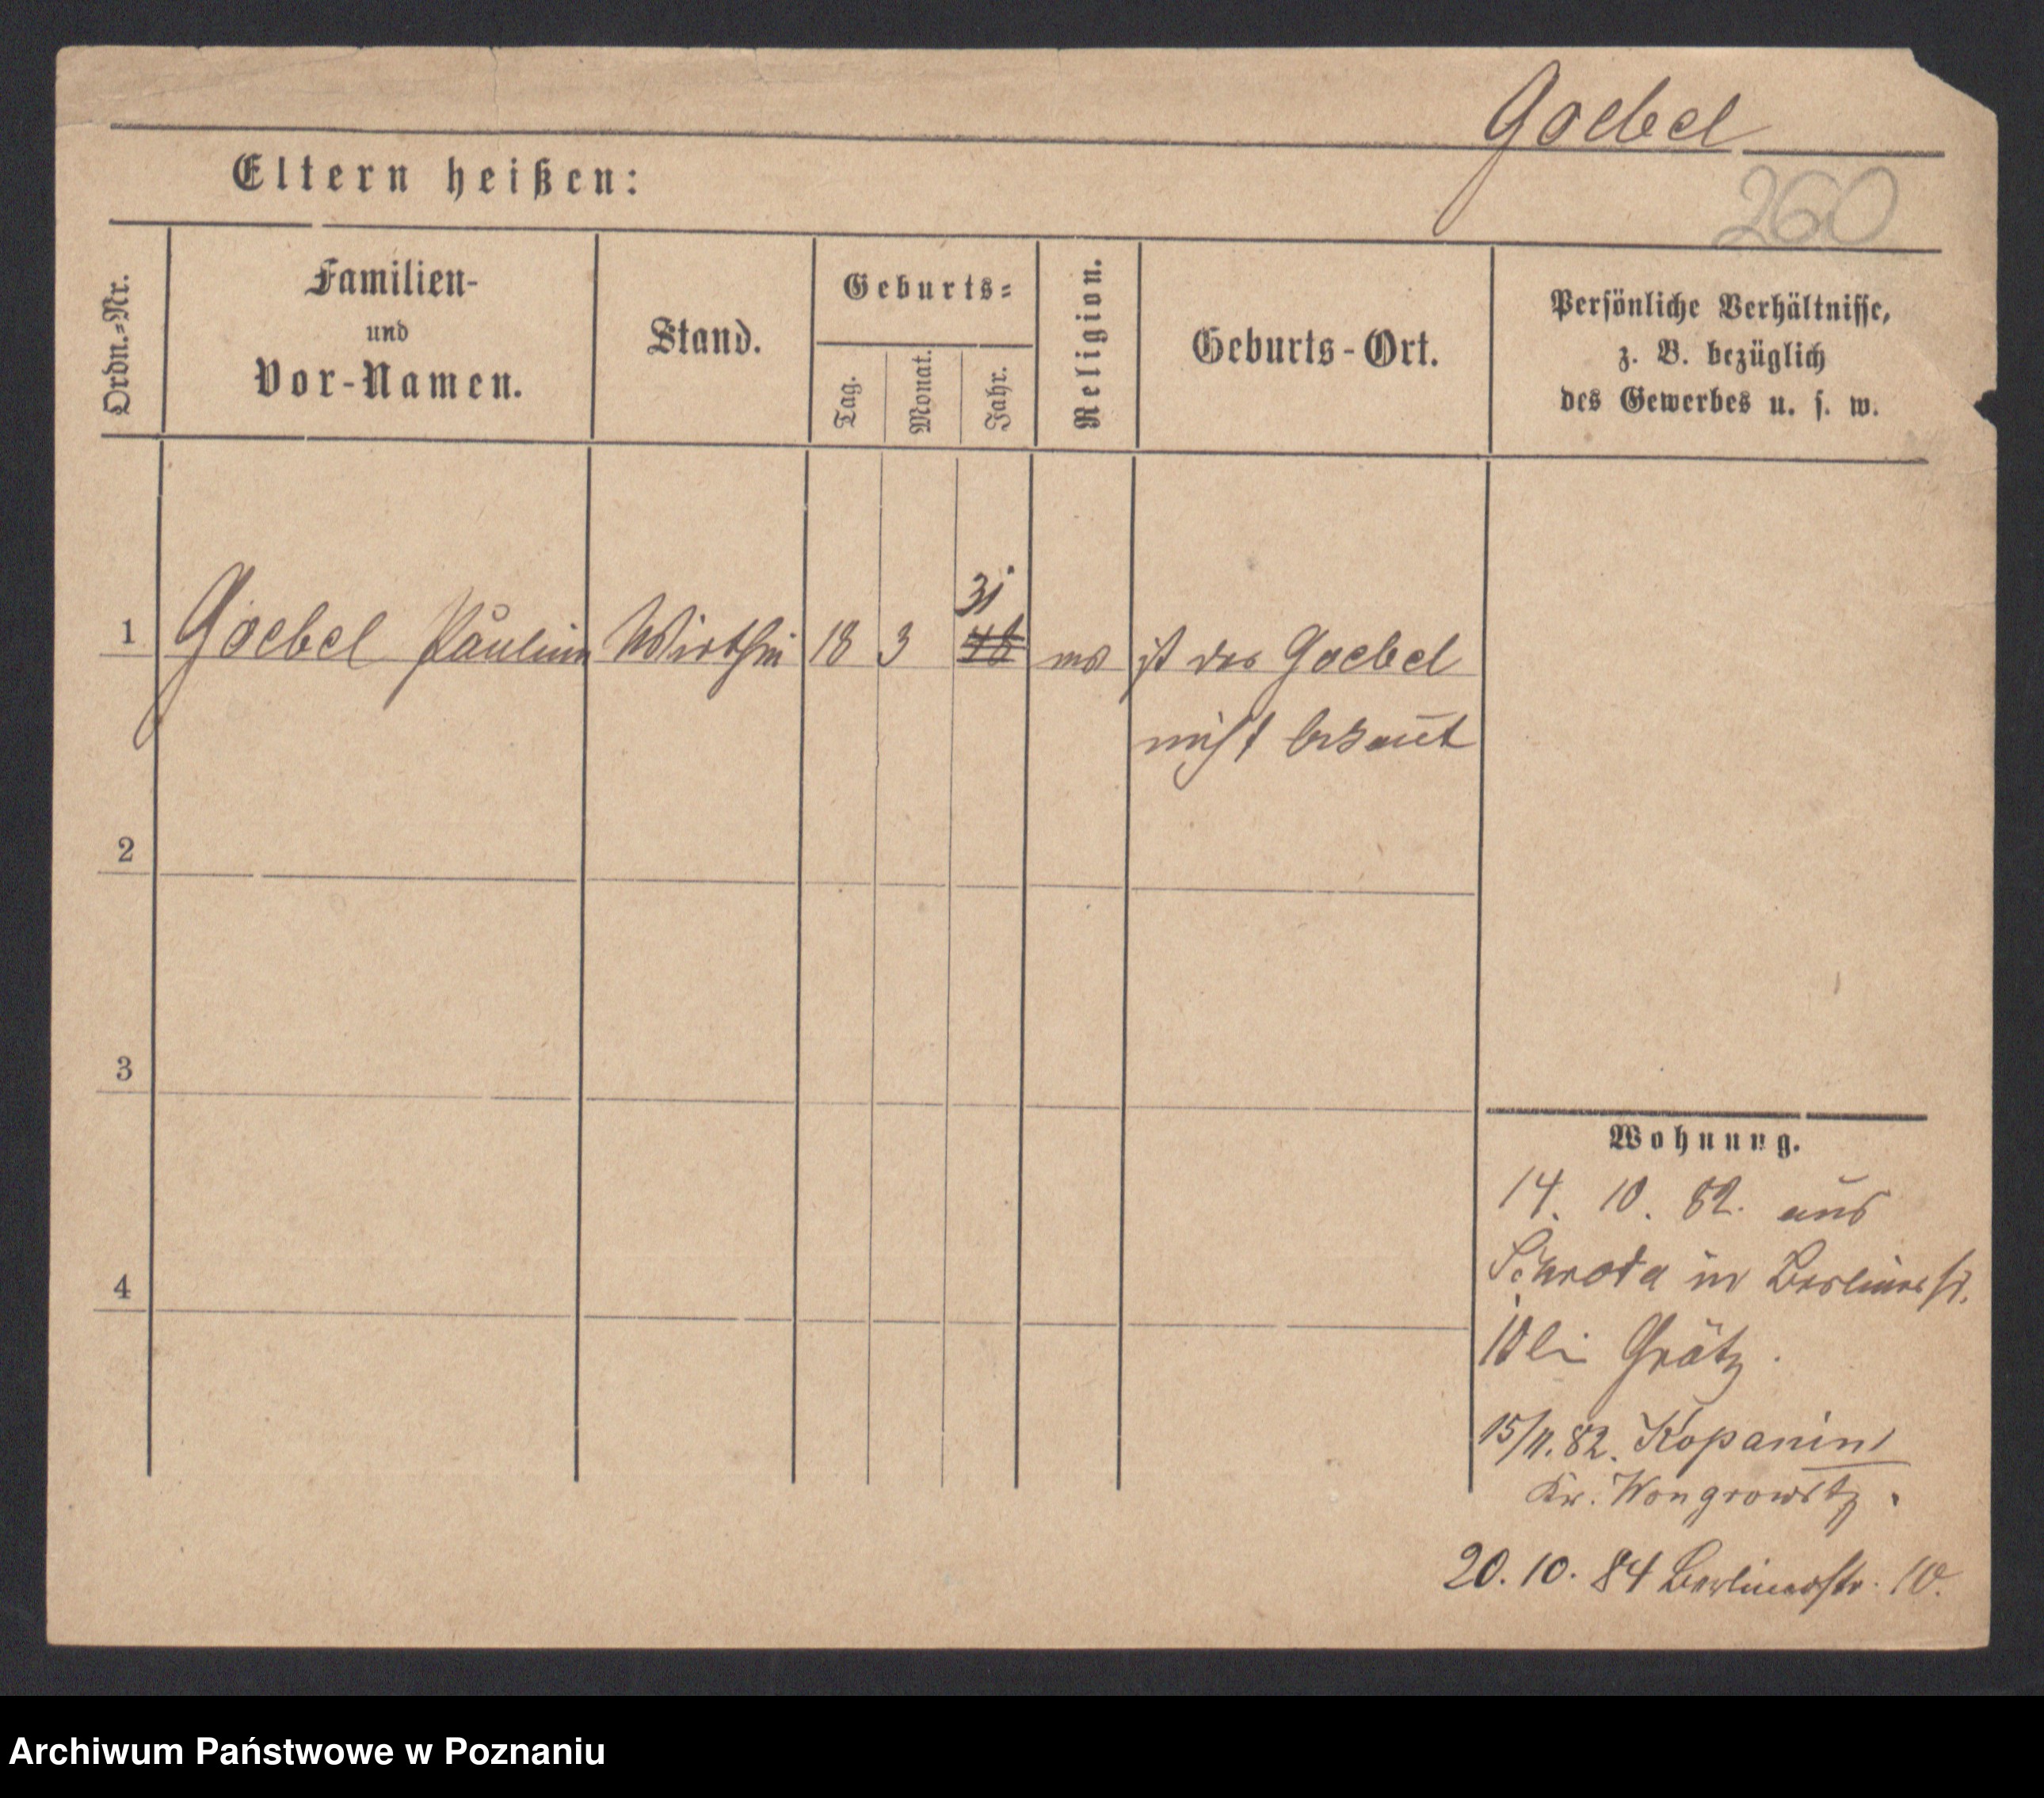 Goebel
Eltern heißen:
260
Ordn.-Nr.
Familien-
und
Vor-Namen.
Stand.
Geburts-
Tag.
Monat.
Jahr.
Religion.
Geburts-Ort.
Persönliche Verhältnisse,
z. B. bezüglich
des Gewerbes u. s. w.
31
1 Goebel Pauline Wirthin 18 3 48 ev ist der Goebel
nicht bekannt
2
3
4
Wohnung.
14. 10. 82. aus
Schroda in Berlinerst.
10 bei Grätz.
15/11. 82. Kopanin
Kr. Wongrowitz.
20. 10. 84 Berlinerstr. 10.
Archiwum Państwowe w Poznaniu